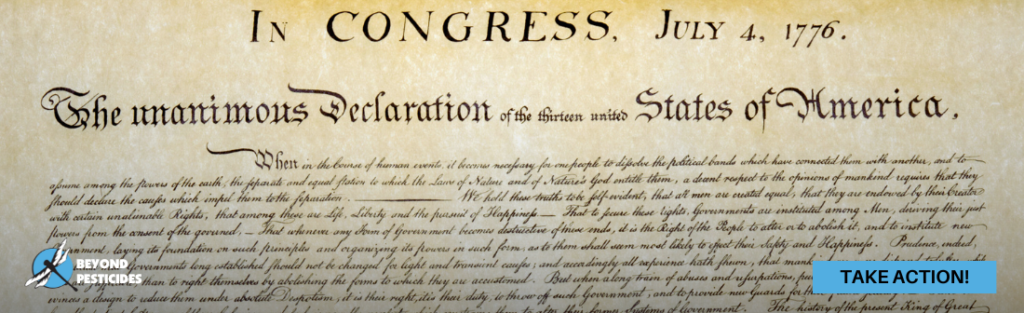 IN CONGRESS, JULY 4, 1776.
The unanimous Declaration of the thirteen united States of America,
When in the Course of human events, it becomes necessary for one people to dissolve the political bands which have connected them with another, and to
assume among the powers of the earth, the separate and equal station to which the Laws of Nature and of Nature's God entitle them, a decent respect to the opinions of mankind requires that they
should declare the causes which impel them to the separation. We hold these truths to be self-evident, that all men are created equal, that they are endowed by their Creator
with certain unalienable Rights, that among these are Life, Liberty and the pursuit of Happiness — That to secure these rights, Governments are instituted among Men, deriving their just
powers from the consent of the governed, — That whenever any Form of Government becomes destructive of these ends, it is the Right of the People to alter or to abolish it, and to institute new
laying its foundation on such principles and organizing its powers in such form, as to them shall seem most likely to effect their Safety and Happiness. Prudence, indeed,
Governments long established should not be changed for light and transient causes; and accordingly all experience hath shewn, that
than to right themselves by abolishing the forms to which they are accustomed. But when a long train of abuses and usurpations,
evinces a design to reduce them under absolute Despotism, it is their right, it is their duty, to throw off such Government, and to provide new Guards for
The history of the present King of Great
BEYOND
PESTICIDES
TAKE ACTION!